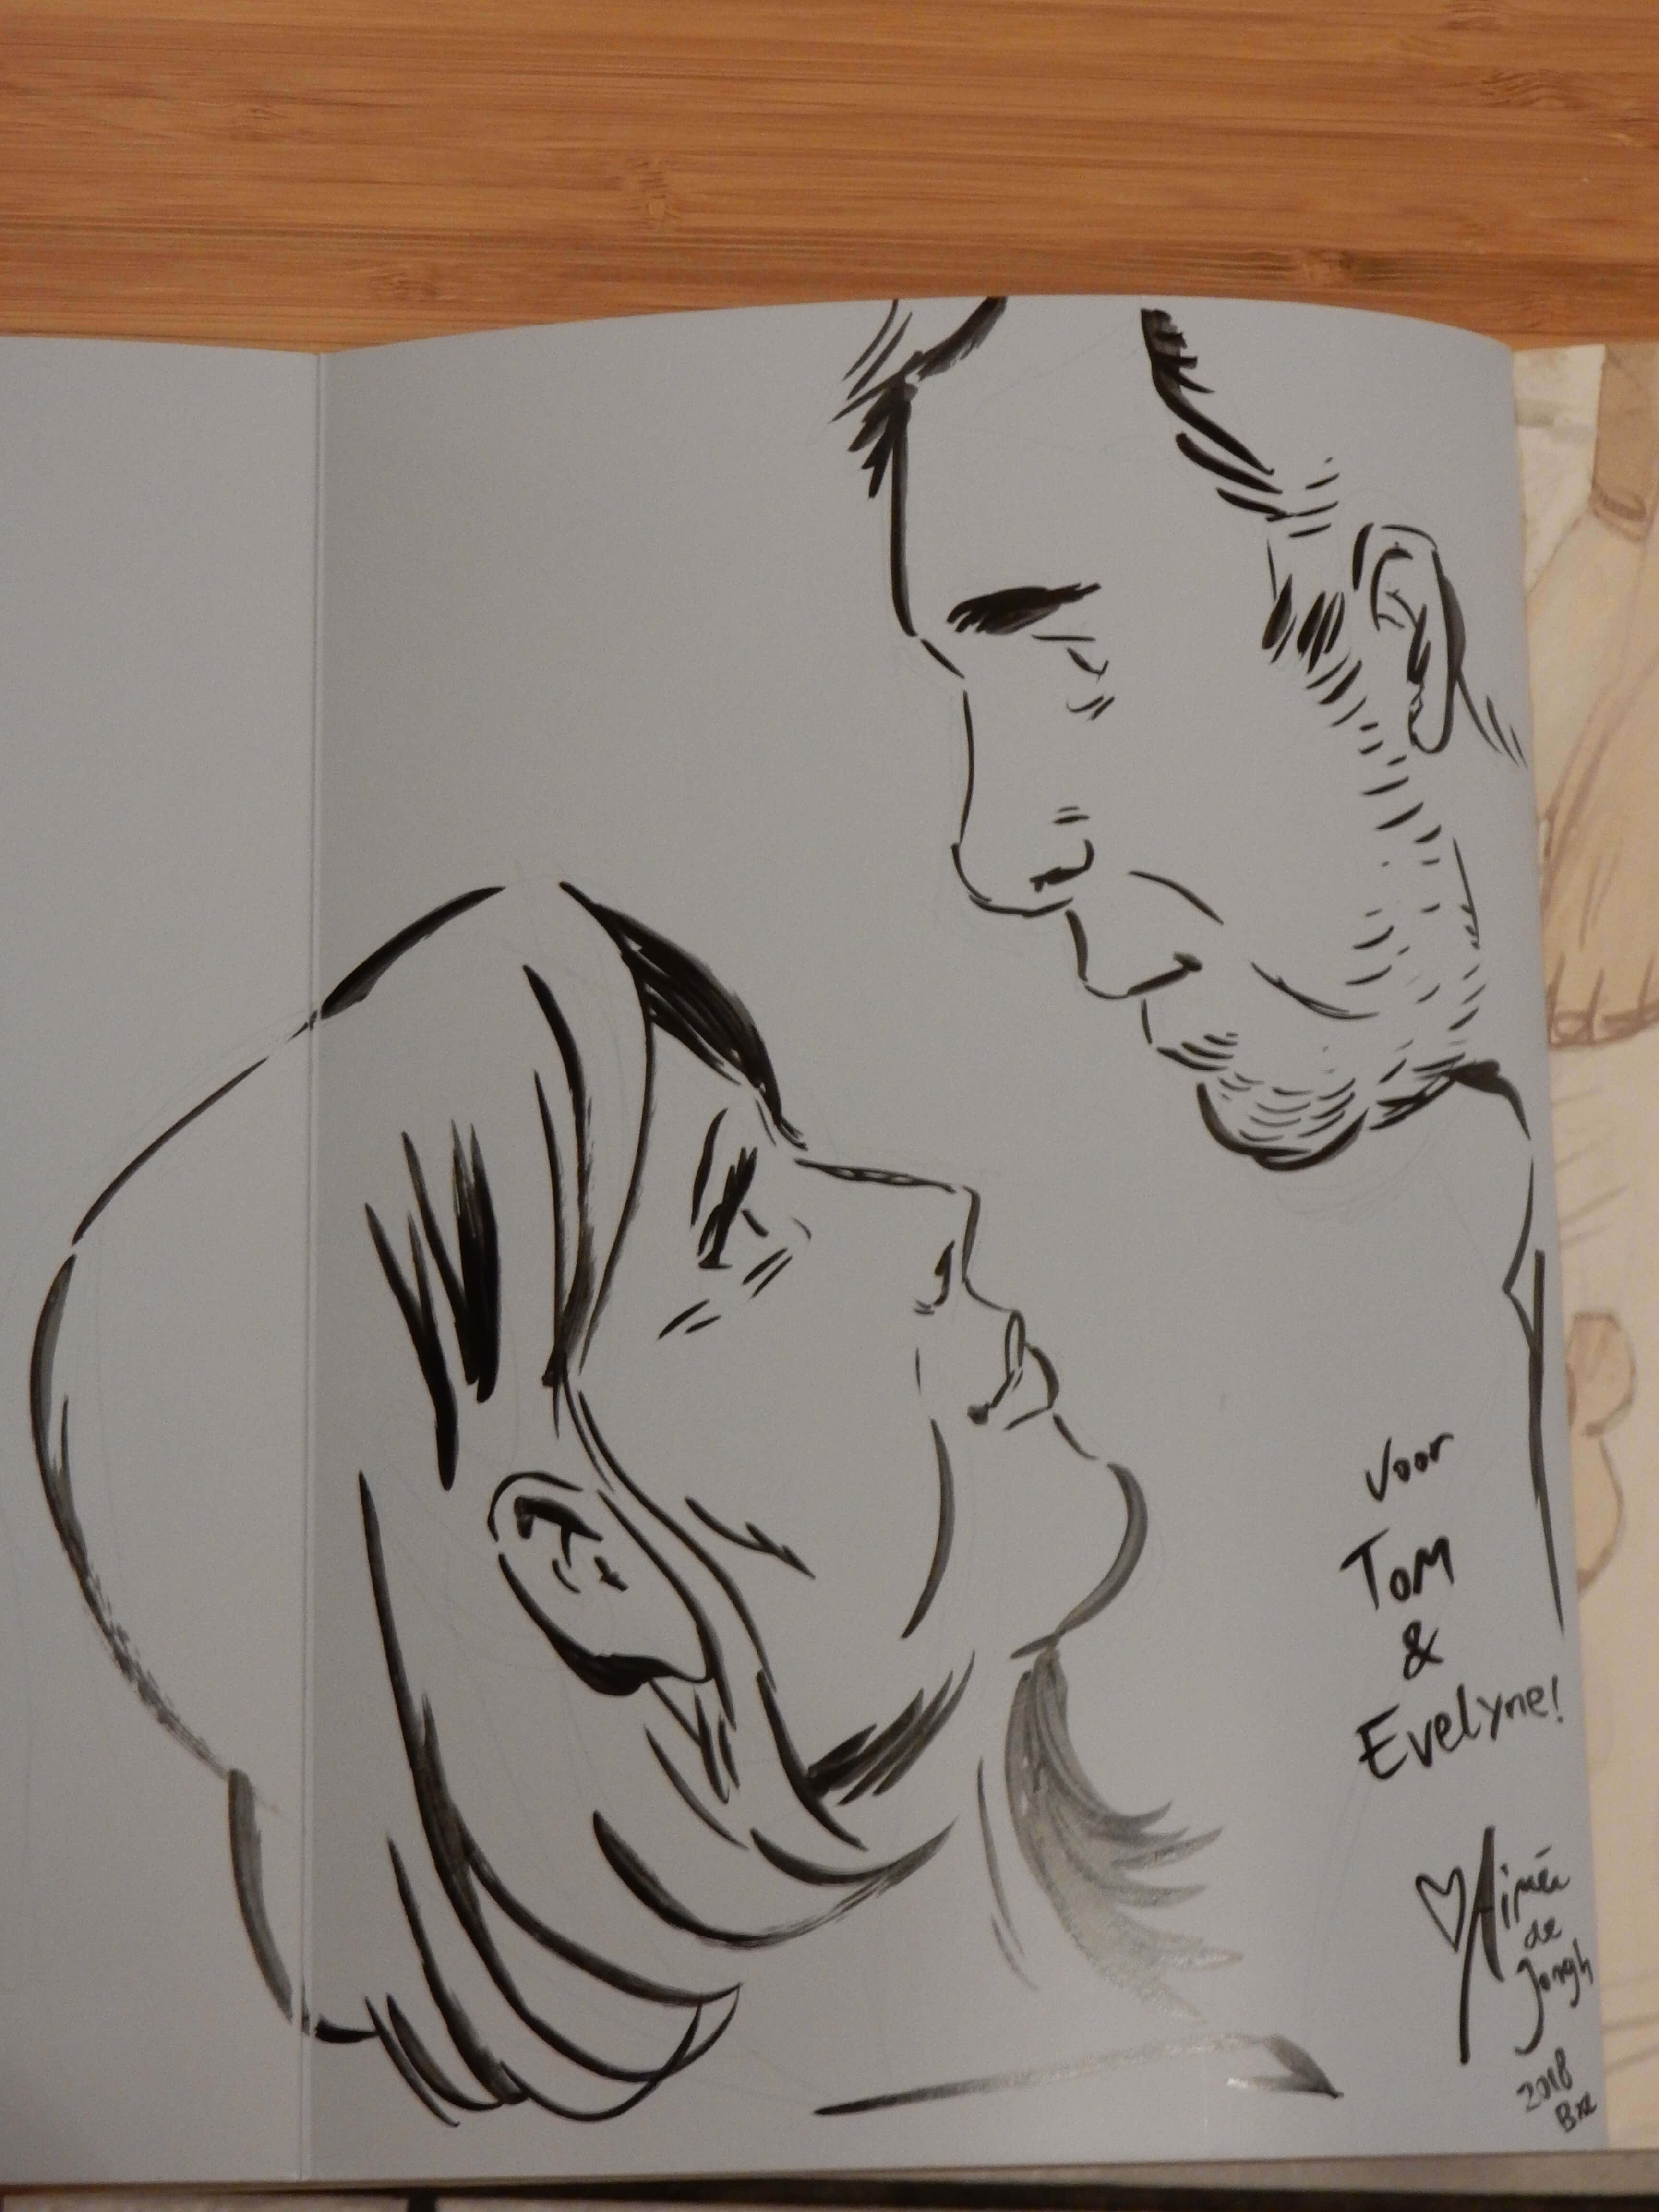 Voor
Tom
&
Evelyne!
Aimée
de
Jongh
2018
BXL